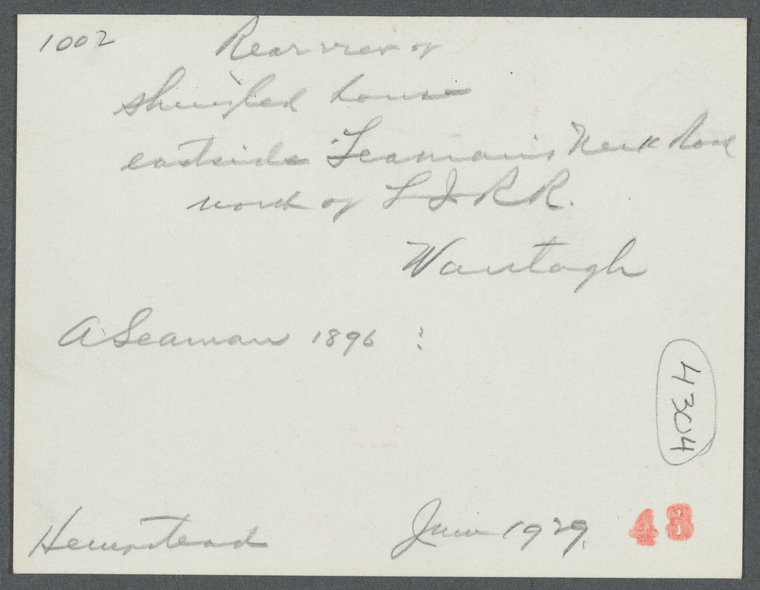 1002
Rear view of
shingled house
east side Seaman's Neck Road
north of L I R R.
Wantagh
A Seaman 1896 ?
4304
Hempstead June 1929.
48